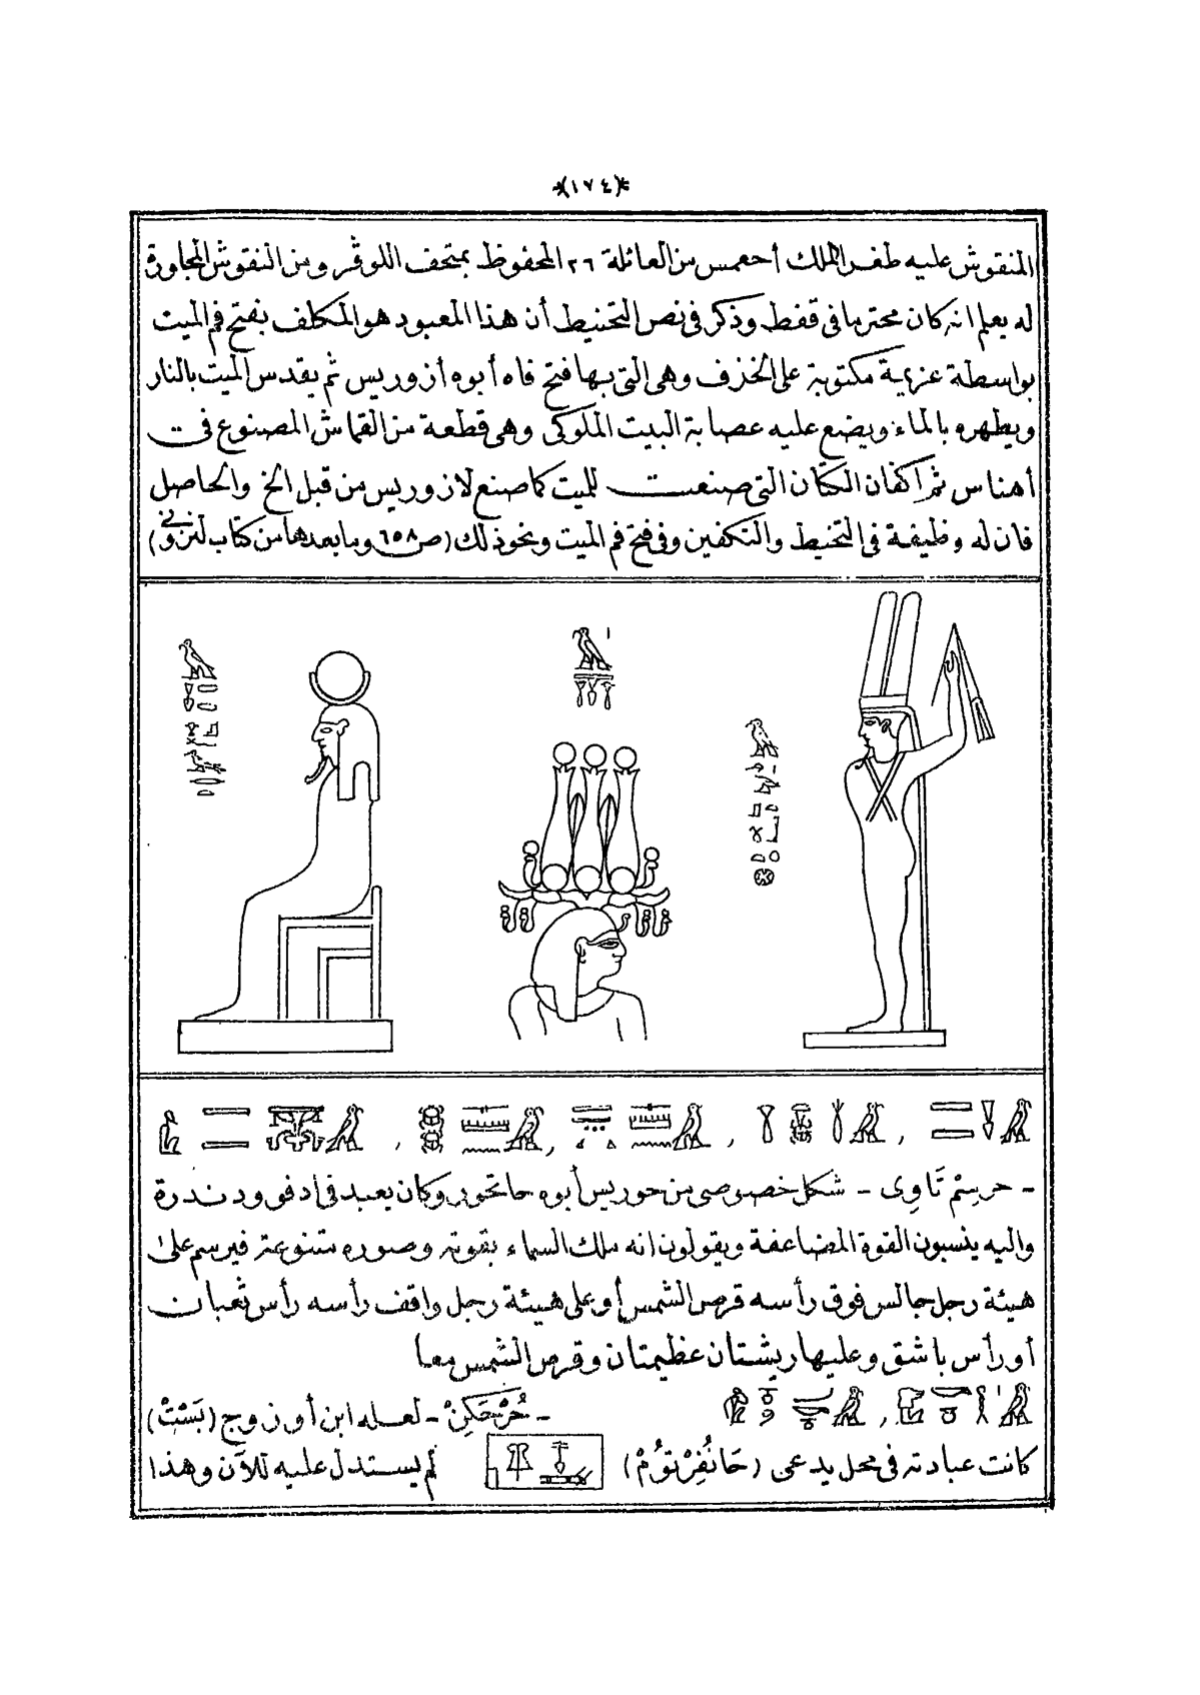 *(١٧٤)*
المنقوش عليه طغرا الملك أحعمس من العائلة ٢٦ المحفوظ بمتحف اللوڤر ومن النقوش المجاورة
له يعلم انه كان محترما فى قفط وذكر فى نص التحنيط أن هذا المعبود هو المكلف بفتح فم الميت
بواسطة عزيمة مكتوبة على الخزف وهى التى بها فتح فاه أبوه أزوريس ثم يقدس الميت بالنار
ويطهره بالماء ويضع عليه عصابة البيت الملوكى وهى قطعة من القماش المصنوع فى
أهناس ثم اكفان الكتان التى صنعت للميت كما صنع لازوريس من قبل الخ والحاصل
فان له وظيفة فى التحنيط والتكفين وفى فتح فم الميت ونحو ذلك (ص ٦٥٨ وما بعدها من كتاب لنزونى)
- حرسِمْ تَاوِى - شكل خصوصى من حوريس أبوه حاتحور وكان يعبد فى ادفو ودندرة
واليه ينسبون القوة المضاعفة ويقولون انه ملك السماء بقوته وصوره متنوعة فيرسم على
هيئة رجل جالس فوق رأسه قرص الشمس أو على هيئة رجل واقف رأسه رأس ثعبان
أو رأس باشق وعليها ريشتان عظيمتان وقرص الشمس معا
- حُرْحَكِنْ - لعله ابن أو زوج (بَسْتْ)
كانت عبادته فى محل يدعى (حَانُفِرْتُومْ) لم يستدل عليه للآن وهذا